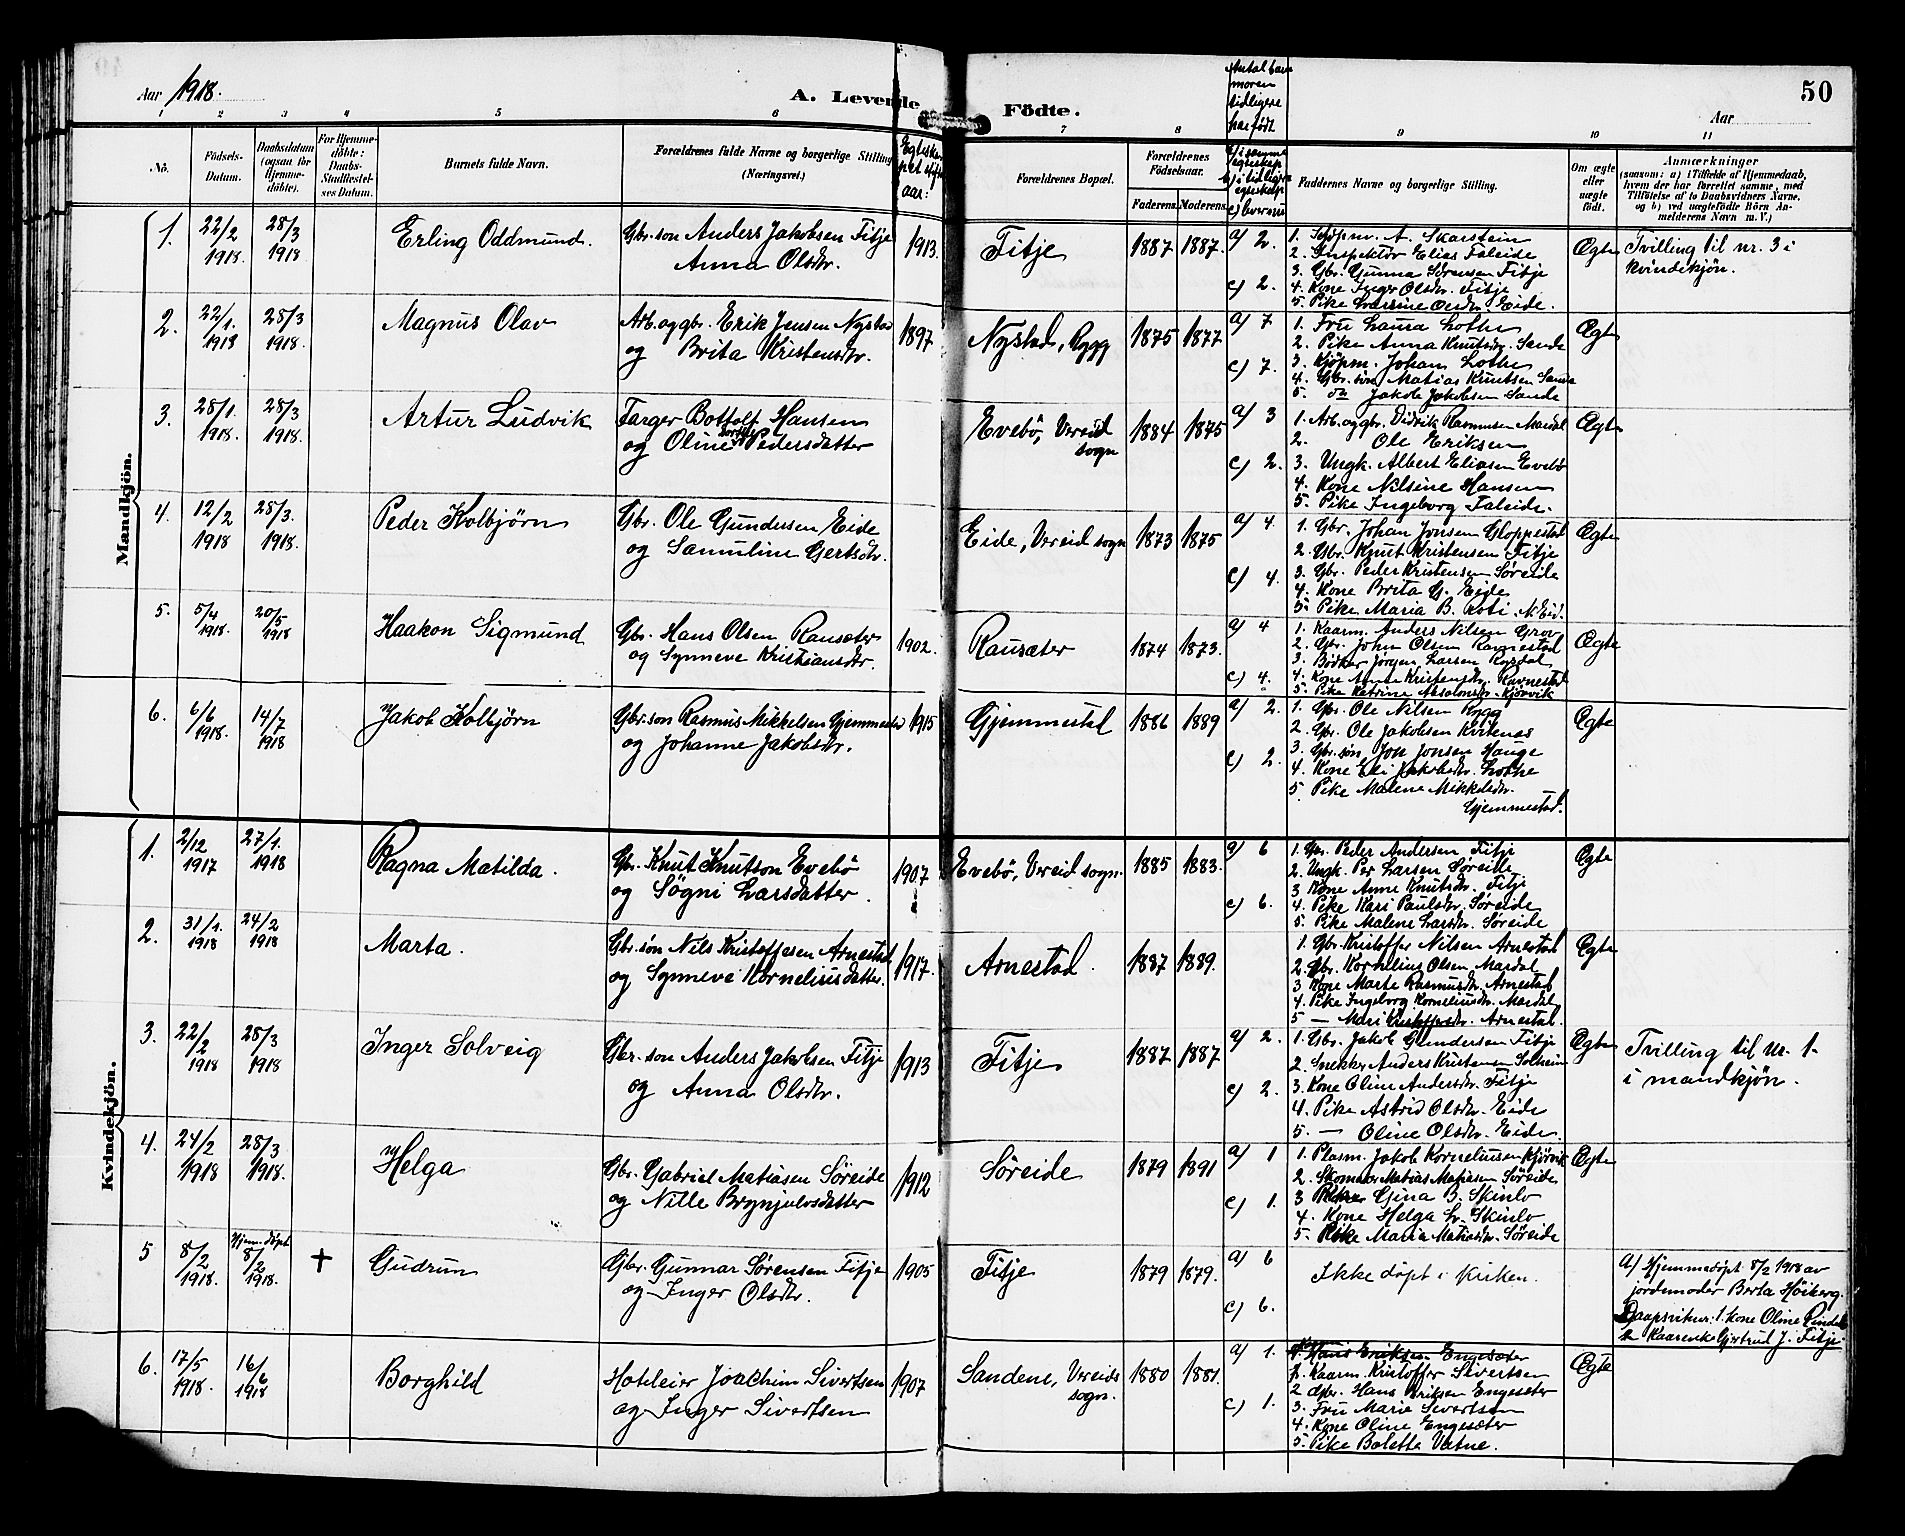 50
Aar 1918.
A. Levende Födte.
Aar
Antal barn moren tidligere har født
1 2 3 4 5 6 7 8 9 10 11
No.
Födsels-Datum.
Daabsdatum (ogsaa for Hjemme-döbte).
For Hjemme-döbte: Daabs-Stadfæstel-ses Datum.
Barnets fulde Navn.
Forældrenes fulde Navne og borgerlige Stilling (Næringsvei.)
Forældrenes Bopæl.
Forældrenes Födselsaar.
Faderens. Moderens.
Faddernes Navne og borgerlige Stilling.
Om ægte eller uægte födt.
Anmærkninger
(saasom: a) i Tilfælde af Hjemmedaab,
hvem der har forrettet samme, med
Tilföielse af to Daabsvidners Navne,
og b) ved uægtefödte Börn An-
melderens Navn m. V.)
Mandkjön.
1. 22/2 1918. 28/3 1918 Erling Oddmund. Gbr. søn Anders Jakobsen Fitje
Anna Olsdtr. 1913. Fitje 1887 1887. a) 2. c) 2.
1. Kjøpm. A. Skarstein
2. Inspektør Elias Faleide
3. Gbr. Gunnar Sørensen Fitje
4. Kone Inger Olsdtr. Fitje
5. Pike Olsdtr. Eide.
Ægte Tvilling til nr. 3 i
kvindekjøn.
2. 22/1. 1918 28/3 1918. Magnus Olav Arb. og gbr. Erik Jensen Nystad
og Brita Kristensdtr. 1897 Nystad, Rygg 1875 1877 a) 7 c) 7.
1. Fru Laura Lothe
2. Pike Anna Knutsdtr. Sande
3. Kjøpm. Johan Lothe
4. Gbr. søn Matias Knutsen Sande
5. do Jakob Jakobsen Sande
Ægte
3. 28/1. 1918. 28/3 1918. Artur Ludvik Farger Bottolf Hansen
og Oline Pedersdatter Evebö, Vereid sogn 1884 1875 a) 3 c) 2.
1. Arb. og gbr. Didrik Rasmussen Mardal
2. Ole Eriksen
3. Ungk. Albert Eliasen Evebö
4. Kone Nilsine Hansen
5. Pike Ingeborg Faleide.
Ægte
4. 12/2 1918 28/3. 1918. Peder Kolbjørn Gbr. Ole Gundersen Eide
og Samuline Gertsdtr. Eide, Vereid sogn 1873 1875 a) 4. c) 4.
1. Gbr. Johan Jonsen Gloppestad
2. Gbr. Knut Kristensen Fitje
3. Gbr. Peder Kristensen Søreide
4. Kone Brita G. Eide
5. Pike Maria B. Roti N. Eid.
Ægte
5. 5/4 1918. 20/5 1918 Haakon Sigmund Gbr. Hans Olsen Rausæter
og Synneve Kristiansdtr. 1902. Rausæter 1874 1873. a) 4 c) 4.
1. Kaarm. Anders Nilsen Grov
2. Gbr. Johan Olsen Ravnestad
3. Bødker Jørgen Larsen Rysdal
4. Kone Anna Kristensdtr. Ravnestad
5. Pike Katrine Absalonsdtr. Kjørvik
Ægte
6. 6/6 1918. 14/7 1918 Jakob Kolbjørn Gbr. søn Rasmus Mikkelsen Gjemmestad
og Johanne Jakobsdtr. 1915 Gjemmestad 1886 1889 a) 2. c) 2.
1. Gbr. Ole Nilsen Rygg
2. Gbr. Ole Jakobsen Kvitenes
3. Gbr. søn Jon Jonsen Hauge
4. Kone Eli Jakobsdtr. Lothe
5. Pike Malene Mikkelsdtr.
Gjemmestad.
Ægte
Kvindekjön.
1. 2/12 1917 27/1. 1918 Ragna Matilda. Gbr. Knut Knutson Evebö
og Søgni Larsdatter. 1907 Evebö, Vereid sogn. 1885 1883. a) 6 c) 6.
1. Gbr. Peder Andersen Fitje
2. Ungk. Per Larsen Søreide
3. Kone Anne Knutsdtr. Fitje
4. Pike Kari Paulsdtr. Søreide
5. Pike Malene Larsdtr. Søreide
Ægte
2. 31/1. 1918 24/2 1918 Marta. Gbr. søn Nils Kristoffersen Arnestad
og Synneve Korneliusdatter. 1917. Arnestad. 1887 1889.
1. Gbr. Kristoffer Nilsen Arnestad
2. Gbr. Kornelius Olsen Mardal
3. Kone Marte Rasmusdtr. Arnestad
4. Pike Ingeborg Korneliusdtr. Mardal
5. — Mari Kristoffersdtr. Arnestad.
Ægte
3. 22/2 1918 28/3 1918 Inger Solveig Gbr. søn Anders Jakobsen Fitje
og Anna Olsdtr. 1913 Fitje 1887 1887 a) 2. c) 2.
1. Gbr. Jakob Gundersen Fitje
2. Snekker Anders Kristensen Solheim
3. Kone Oline Andersdtr. Fitje
4. Pike Astrid Olsdtr. Eide
5. — Oline Olsdtr. Eide.
Ægte Tvilling til nr. 1.
i mandkjøn.
4. 24/2 1918 28/3 1918. Helga Gbr. Gabriel Matiasen Søreide
og Nille Brynjulvsdatter 1912 Søreide 1879 1891 a) 1 c) 1.
1. Plasm. Jakob Korneliussen Kjørvik
2. Skomaker Matias Matiasen Søreide
3 Gina B. Skinlo
4. Kone Helga L. Skinlo
5. Pike Maria Matiasdtr. Søreide
Ægte
5 8/2 1918. Hjem. døpt 8/2 1918. + Gudrun Gbr. Gunnar Sørensen Fitje
og Inger Olsdtr. 1905 Fitje 1879 1879. a) 6 c) 6.
Ikke døpt i kirken.
a) Hjemmedøpt 8/2 1918 av
jordemoder Berta Höiberg.
Daapsvitner: 1. Kone Oline Rindal
2. Kaarenke Gjertrud J. Fitje
6. 17/5 1918. 16/6 1918 Borghild Hoteleier Joachim Sivertsen
og Inger Sivertsen 1907 Sandene, Vereids sogn. 1880 1881. a) 1. c) 1.
Hans Eriksen Engesæter
1. Kaarm. Kristoffer Sivertsen
2. Gbr. Hans Eriksen Engesæter
3. Fru Marie Sivertsen
4. Kone Oline Engesæter
5. Pike Boletta Vatne.
Ægte